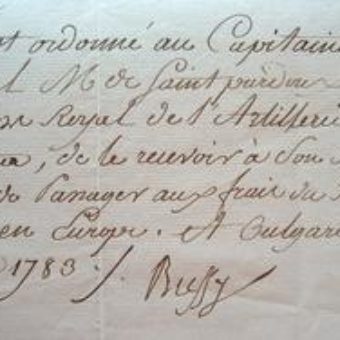 t ordonné au Capitain
l M. de Saint
Royal de l'Artillerie
, de le recevoir à Son
Passager aux frais du
en Europe. A
1783 ./. Bussy